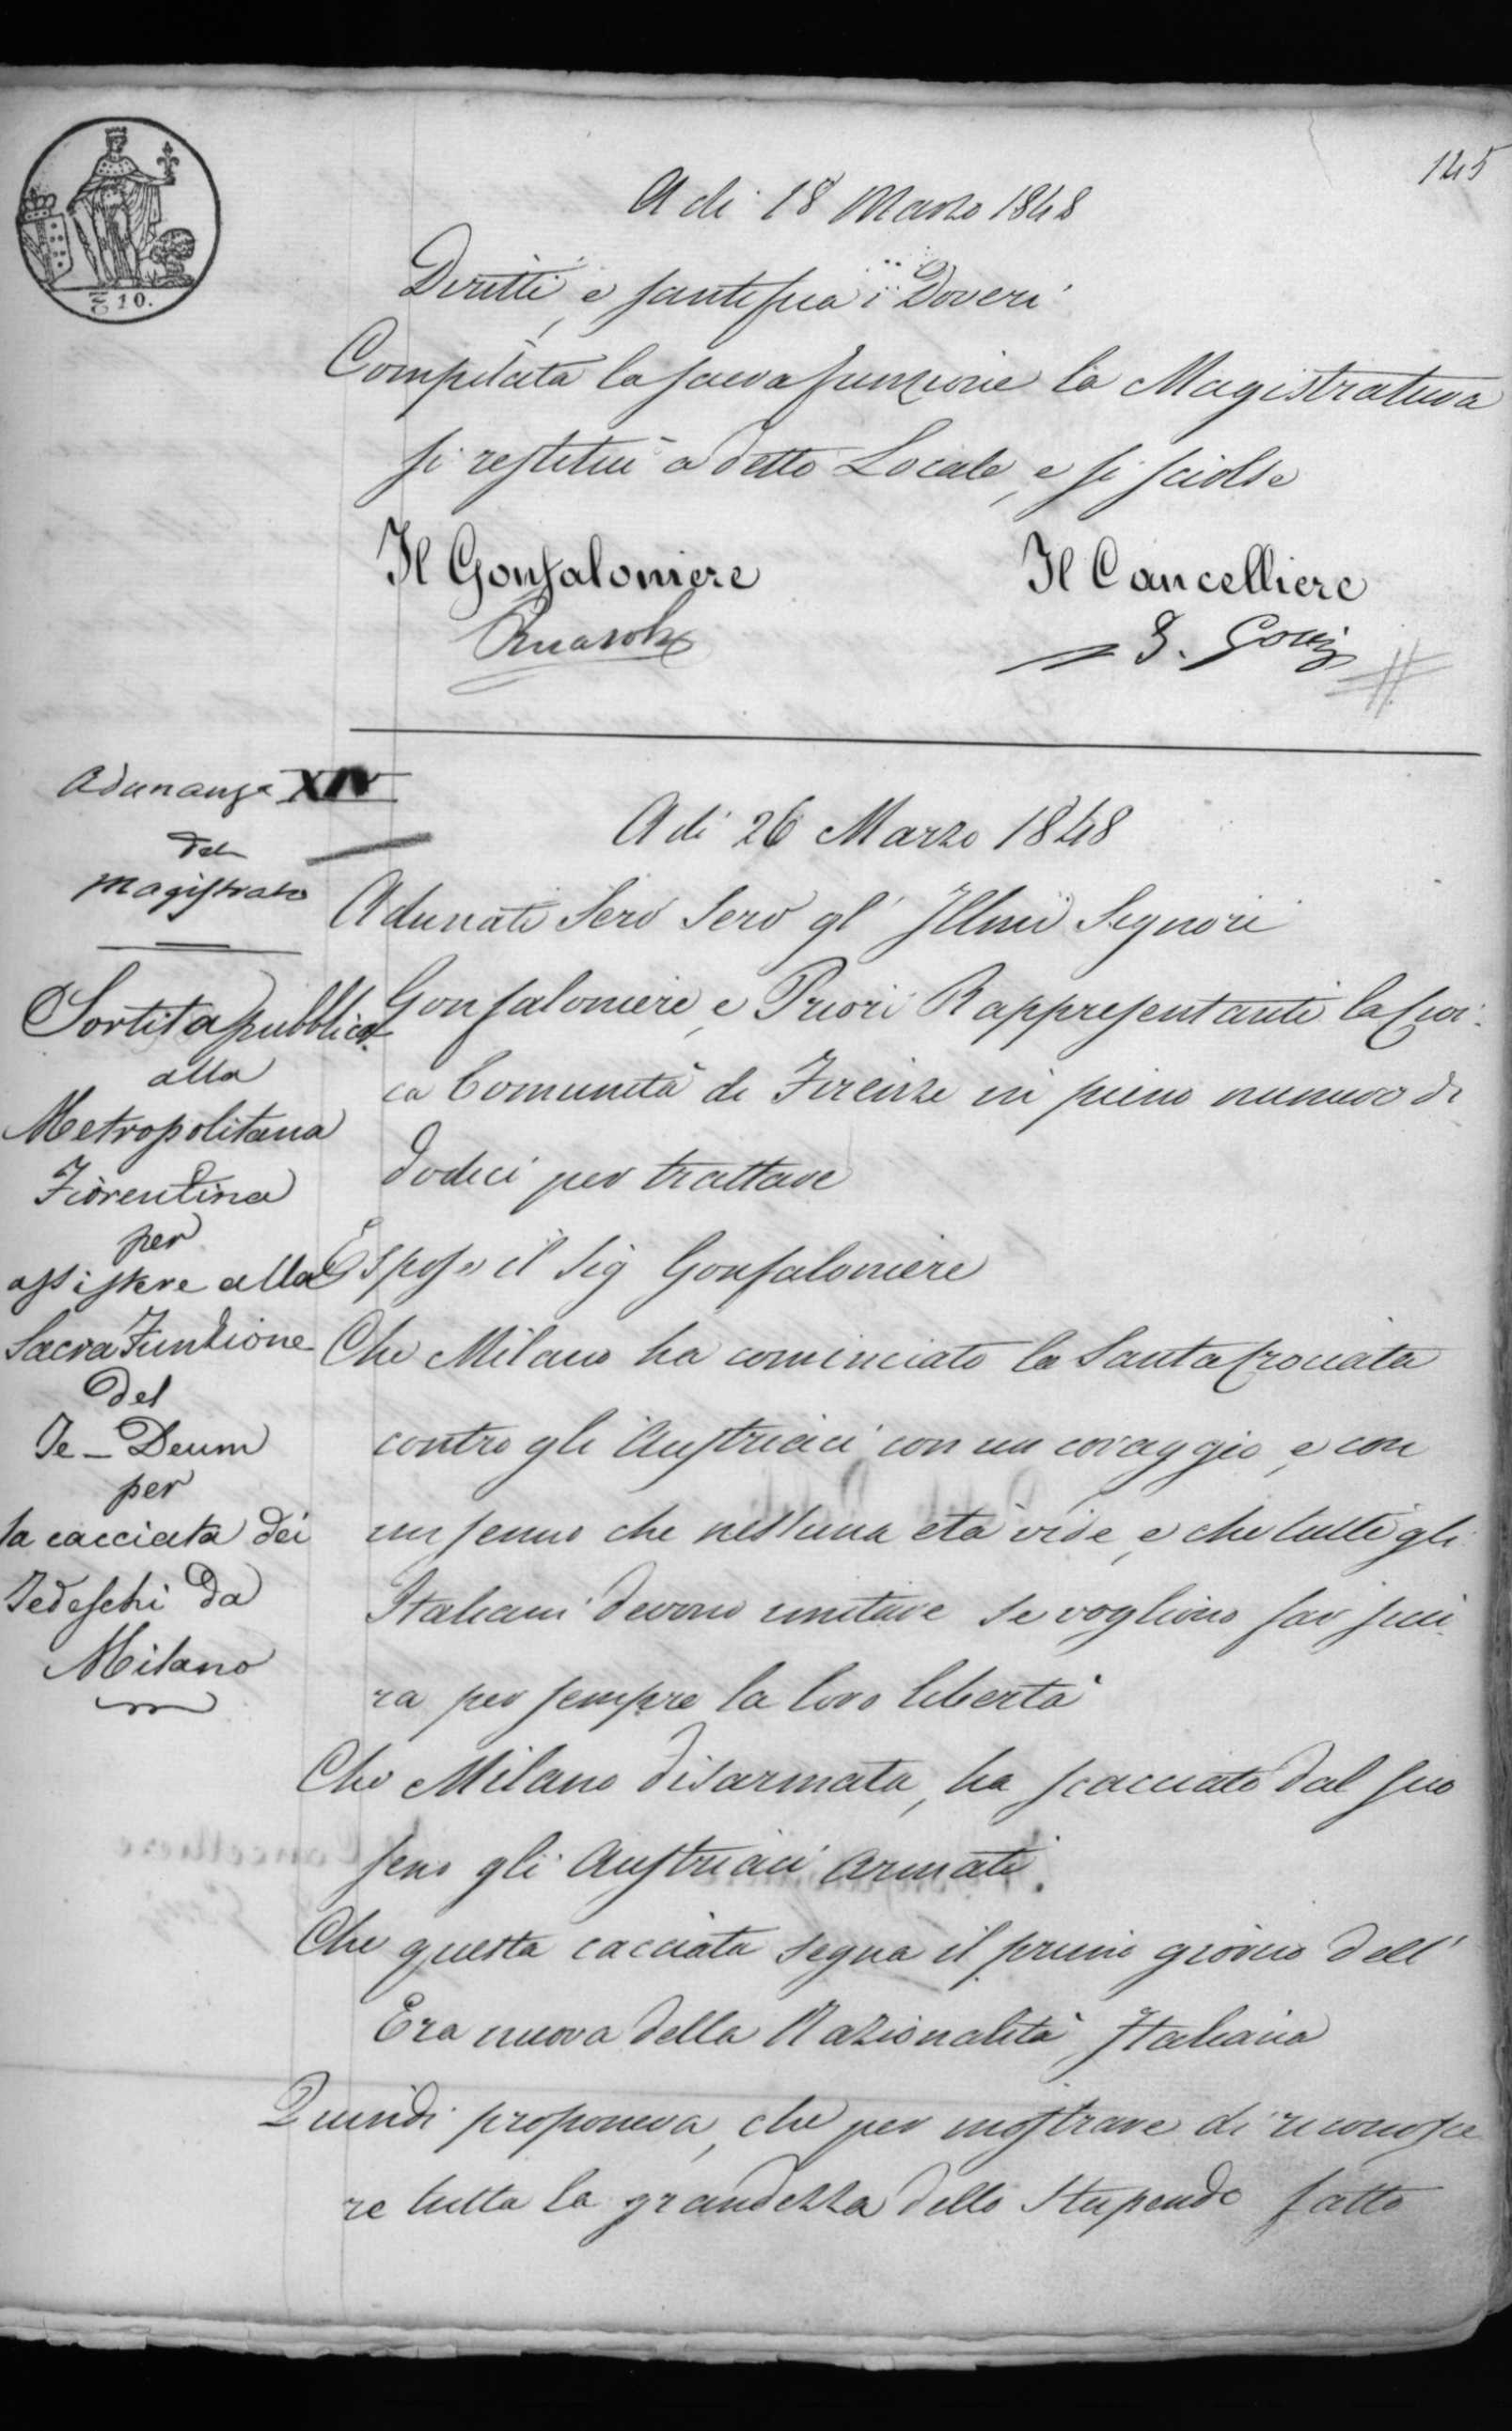 145
A di 18 Marzo 1848
Diritti, e santifica i Doveri
Compilata la sacra funzione la Magistratura
si restituì a detto Locale, e si sciolse
Il Gonfaloniere
Il Cancelliere
10.
Adunanza XIV
del
Magistrato
Sortita pubblica
alla
Metropolitana
Fiorentina
per
assistere alla
Sacra Funzione
del
Te-Deum
per
la cacciata dei
Tedeschi da
Milano
A di 26 Marzo 1848
Adunati Serv Serv gl' Illmi Signori
Gonfaloniere, e Priori Rappresentanti la Civi-
ca Comunità di Firenze in pieno numero di
dodici per trattare
Espose il Sig Gonfaloniere
Che Milano ha cominciato la Santa Crociata
contro gli Austriaci con un coraggio, e con
un senno che nessuna età vide, e che tutti gli
Italiani devono imitare se vogliono far sicu-
ra per sempre la loro libertà
Che Milano disarmata, ha scacciato dal suo
seno gli Austriaci armati.
Che questa cacciata segna il primo giorno dell'
Era nuova della Nazionalità Italiana
Quindi proponeva, che per mostrare di riconosce
re tutta la grandezza dello Stupendo fatto